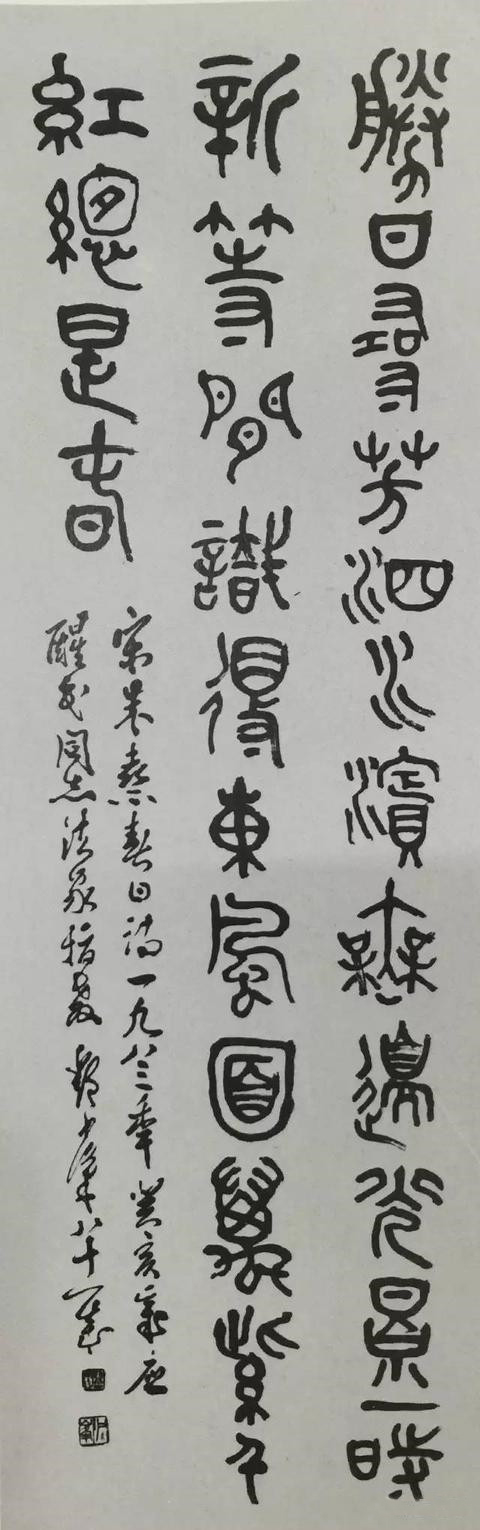 勝日尋芳泗水濱無邊光景一時
新等間識得東風面萬紫千
紅總是春
宋朱熹春日詩一九八三年癸亥歲應
醒同志法家指教八十一